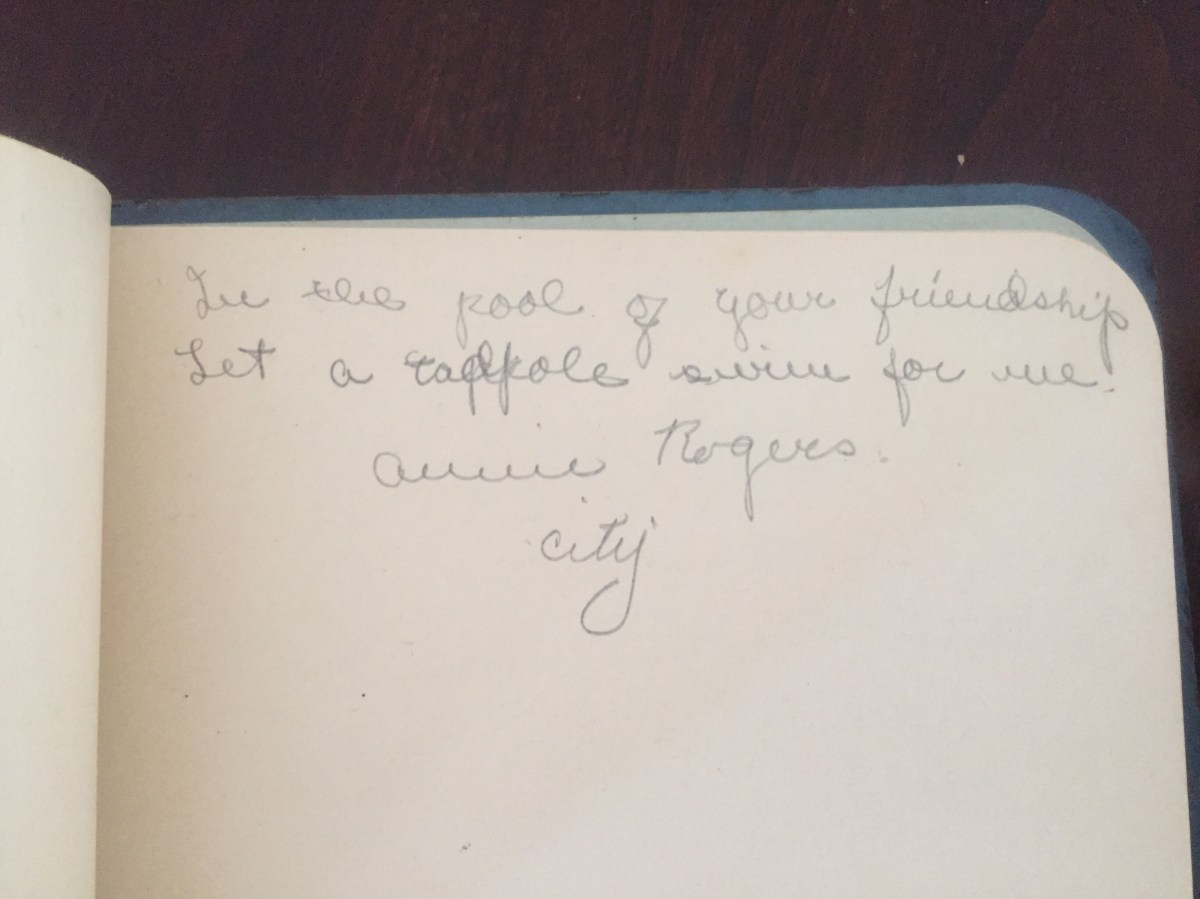 In the pool of your friendship
Let a tadpole swim for me.
Annie Rogers.
city